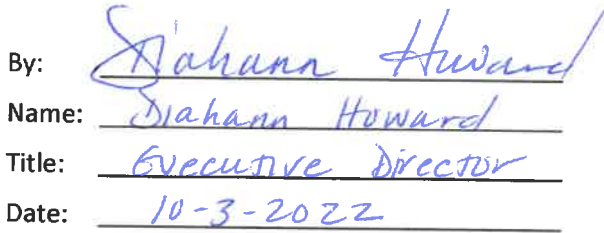 By: Diahann Howard
Name: Diahann Howard
Title: Executive Director
Date: 10-3-2022